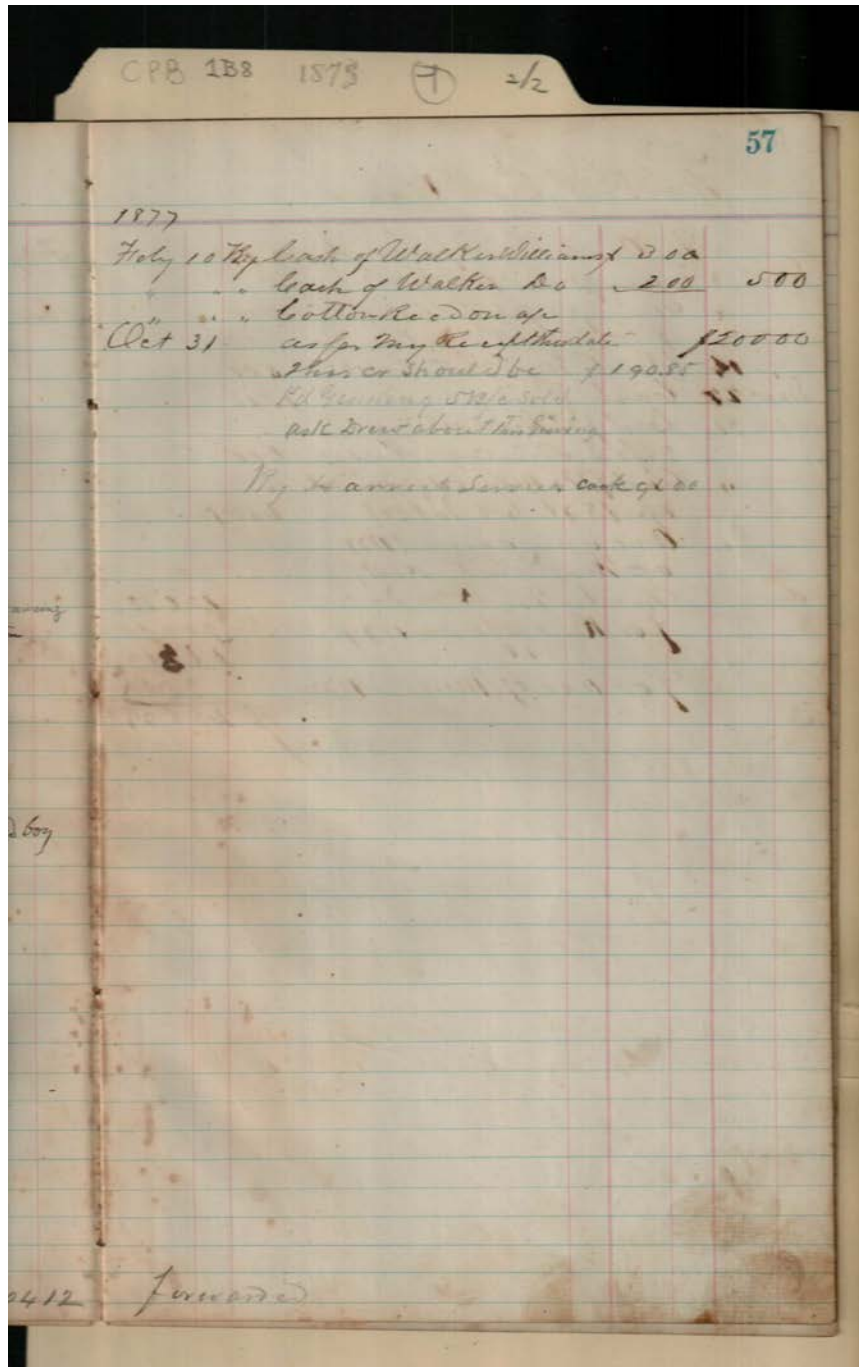 CPB 1B8 1873 1 2/2
57
1877
Feby 10 By Cash of Walker Williams $ 3 00
" " " Cash of Walker Do 2 00 5 00
" " " Cotton Recd on a/c
Oct 31 as per my Receipt this date $200 00
This cr should be $190.85
Pd Ginning 5 B/c Sold
ask Drew about this Ginning
By amount Services cook
forwarded
0412